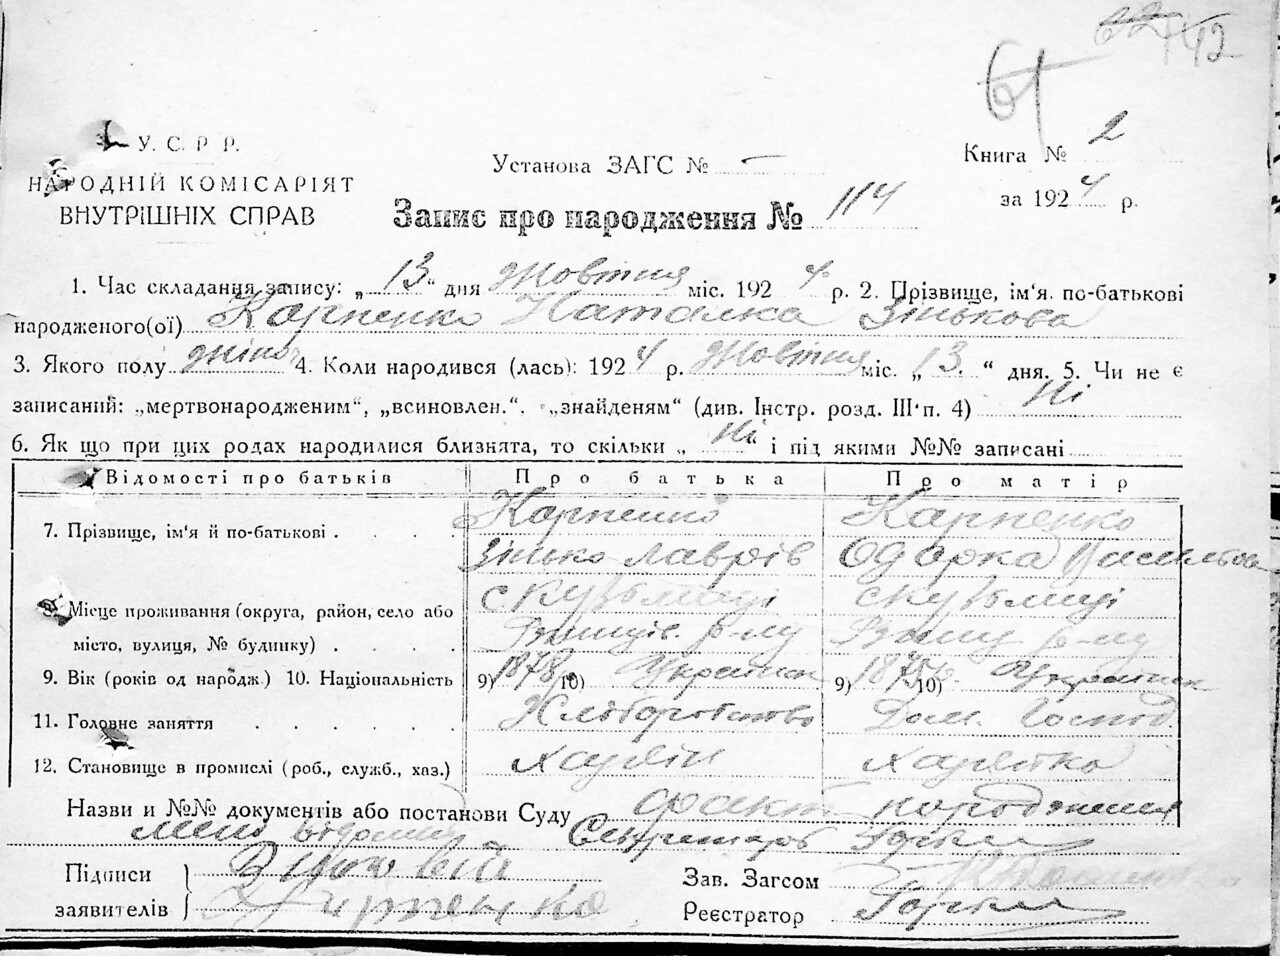 142
61
У. С. Р Р.
НАРОДНІЙ КОМІСАРІЯТ
ВНУТРІШНІХ СПРАВ
Установа ЗАГС №
Книга № 2
за 1924 р.
Запис про народження № 114
1. Час складання запису: „13“ дня Жовтня міс. 1924 р. 2. Прізвище, ім'я. по-батькові
народженого(ої) Карпенко Наталка Зінькова
3. Якого полу жіноч 4. Коли народився (лась): 1924 р. Жовтня міс. „13.“ дня. 5. Чи не є
записаний: „мертвонародженим“, „всиновлен.“. „знайденям“ (див. Інстр. розд. III п. 4) Ні
6. Як що при цих родах народилися близнята, то скільки „Ні“ і під якими №№ записані
Відомості про батьків Про батька Про матір
7. Прізвище, ім'я й по-батькові . . . . Карпенко Карпенко
Зінько Лаврів Одарка Васильова
8. Місце проживання (округа, район, село або
місто, вулиця, № будинку) . . . . р-ну р-ну
9. Вік (років од народж.) 10. Національність 9) 1878 10) Українец 9) 10) Українка
11. Головне заняття . . . . . . Хліборобство Дом. Господ.
12. Становище в промислі (роб., служб., хаз.) хазяїн хазяйка
Назви и №№ документів або постанови Суду факт народження
мені відомий Секретарь
Підписи
заявителів
Зав. Загсом
Реєстратор